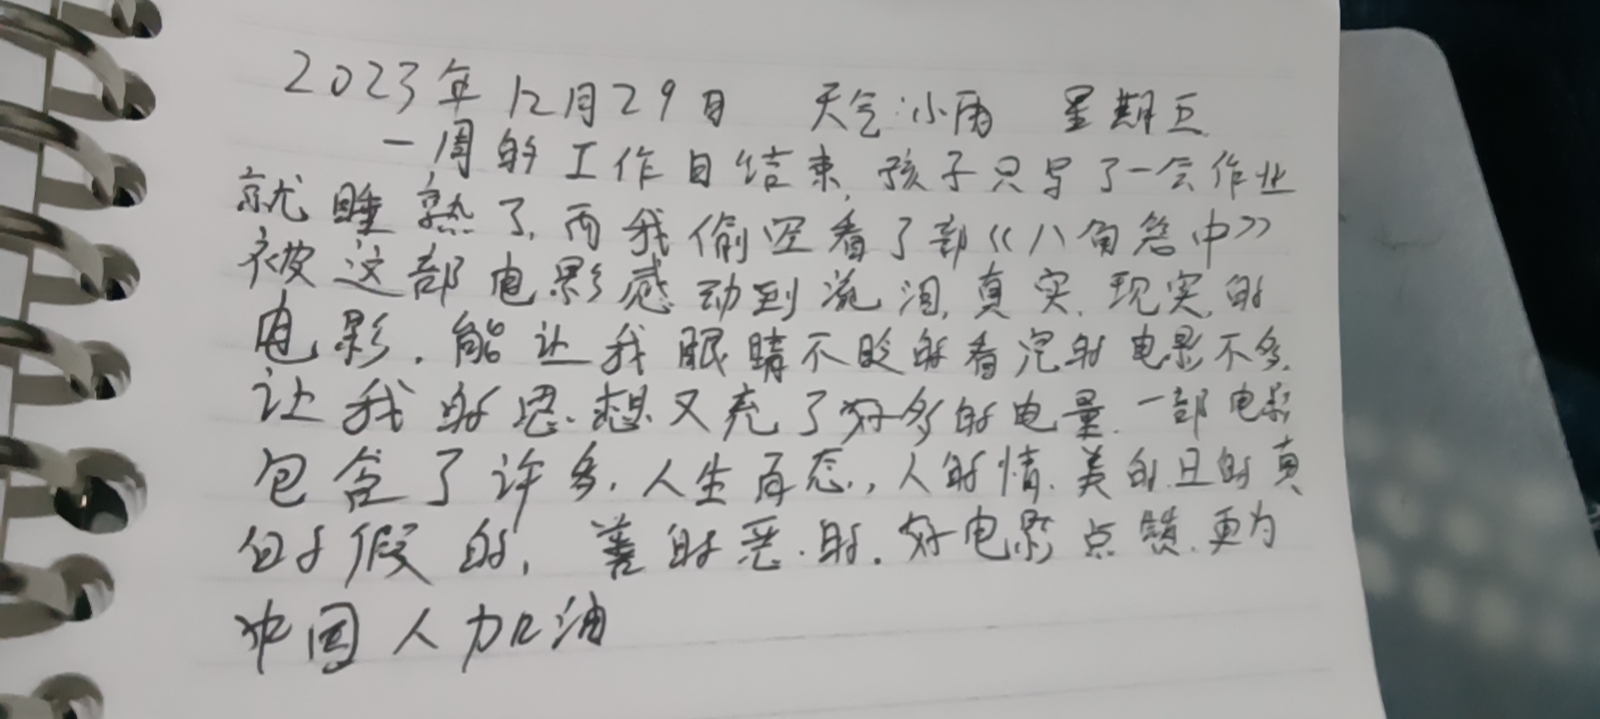 2023年12月29日 天气:小雨 星期五
一周的工作日结束,孩子只写了一会作业
就睡熟了,而我偷空看了部《八角笼中》
被这部电影感动到流泪,真实.现实的
电影.能让我眼睛不眨的看完的电影不多.
让我的思想又充了好多的电量.一部电影
包含了许多.人生百态.,人的情.美的.丑的真
的假的,善的恶.的.好电影点赞.更为
中国人加油